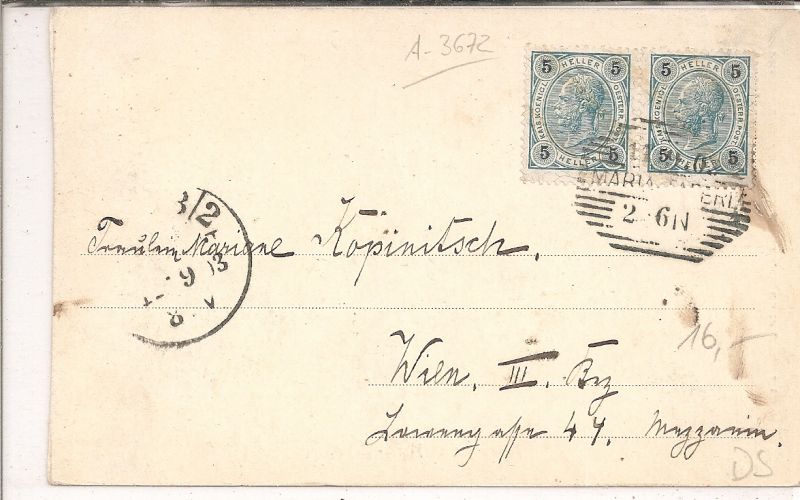 A-3672
5 HELLER 5
KAIS. KOENIGL. OESTERR. POST.
5 HELLER 5
5 HELLER 5
KAIS. KOENIGL. OESTERR. POST.
5 HELLER 5
MARIA
2 6N
3/2
9 03
Fräulein Mariane Kopinitsch.
Wien, III. Bez
Löwengasse 44. Mezzanin.
16,-
DS